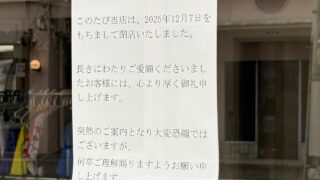 このたび当店は、2025年12月7日を
もちまして閉店いたしました。
長きにわたりご愛顧くださいまし
たお客様には、心より厚く御礼申
し上げます。
突然のご案内となり大変恐縮では
ございますが、
何卒ご理解賜りますようお願い申
し上げます